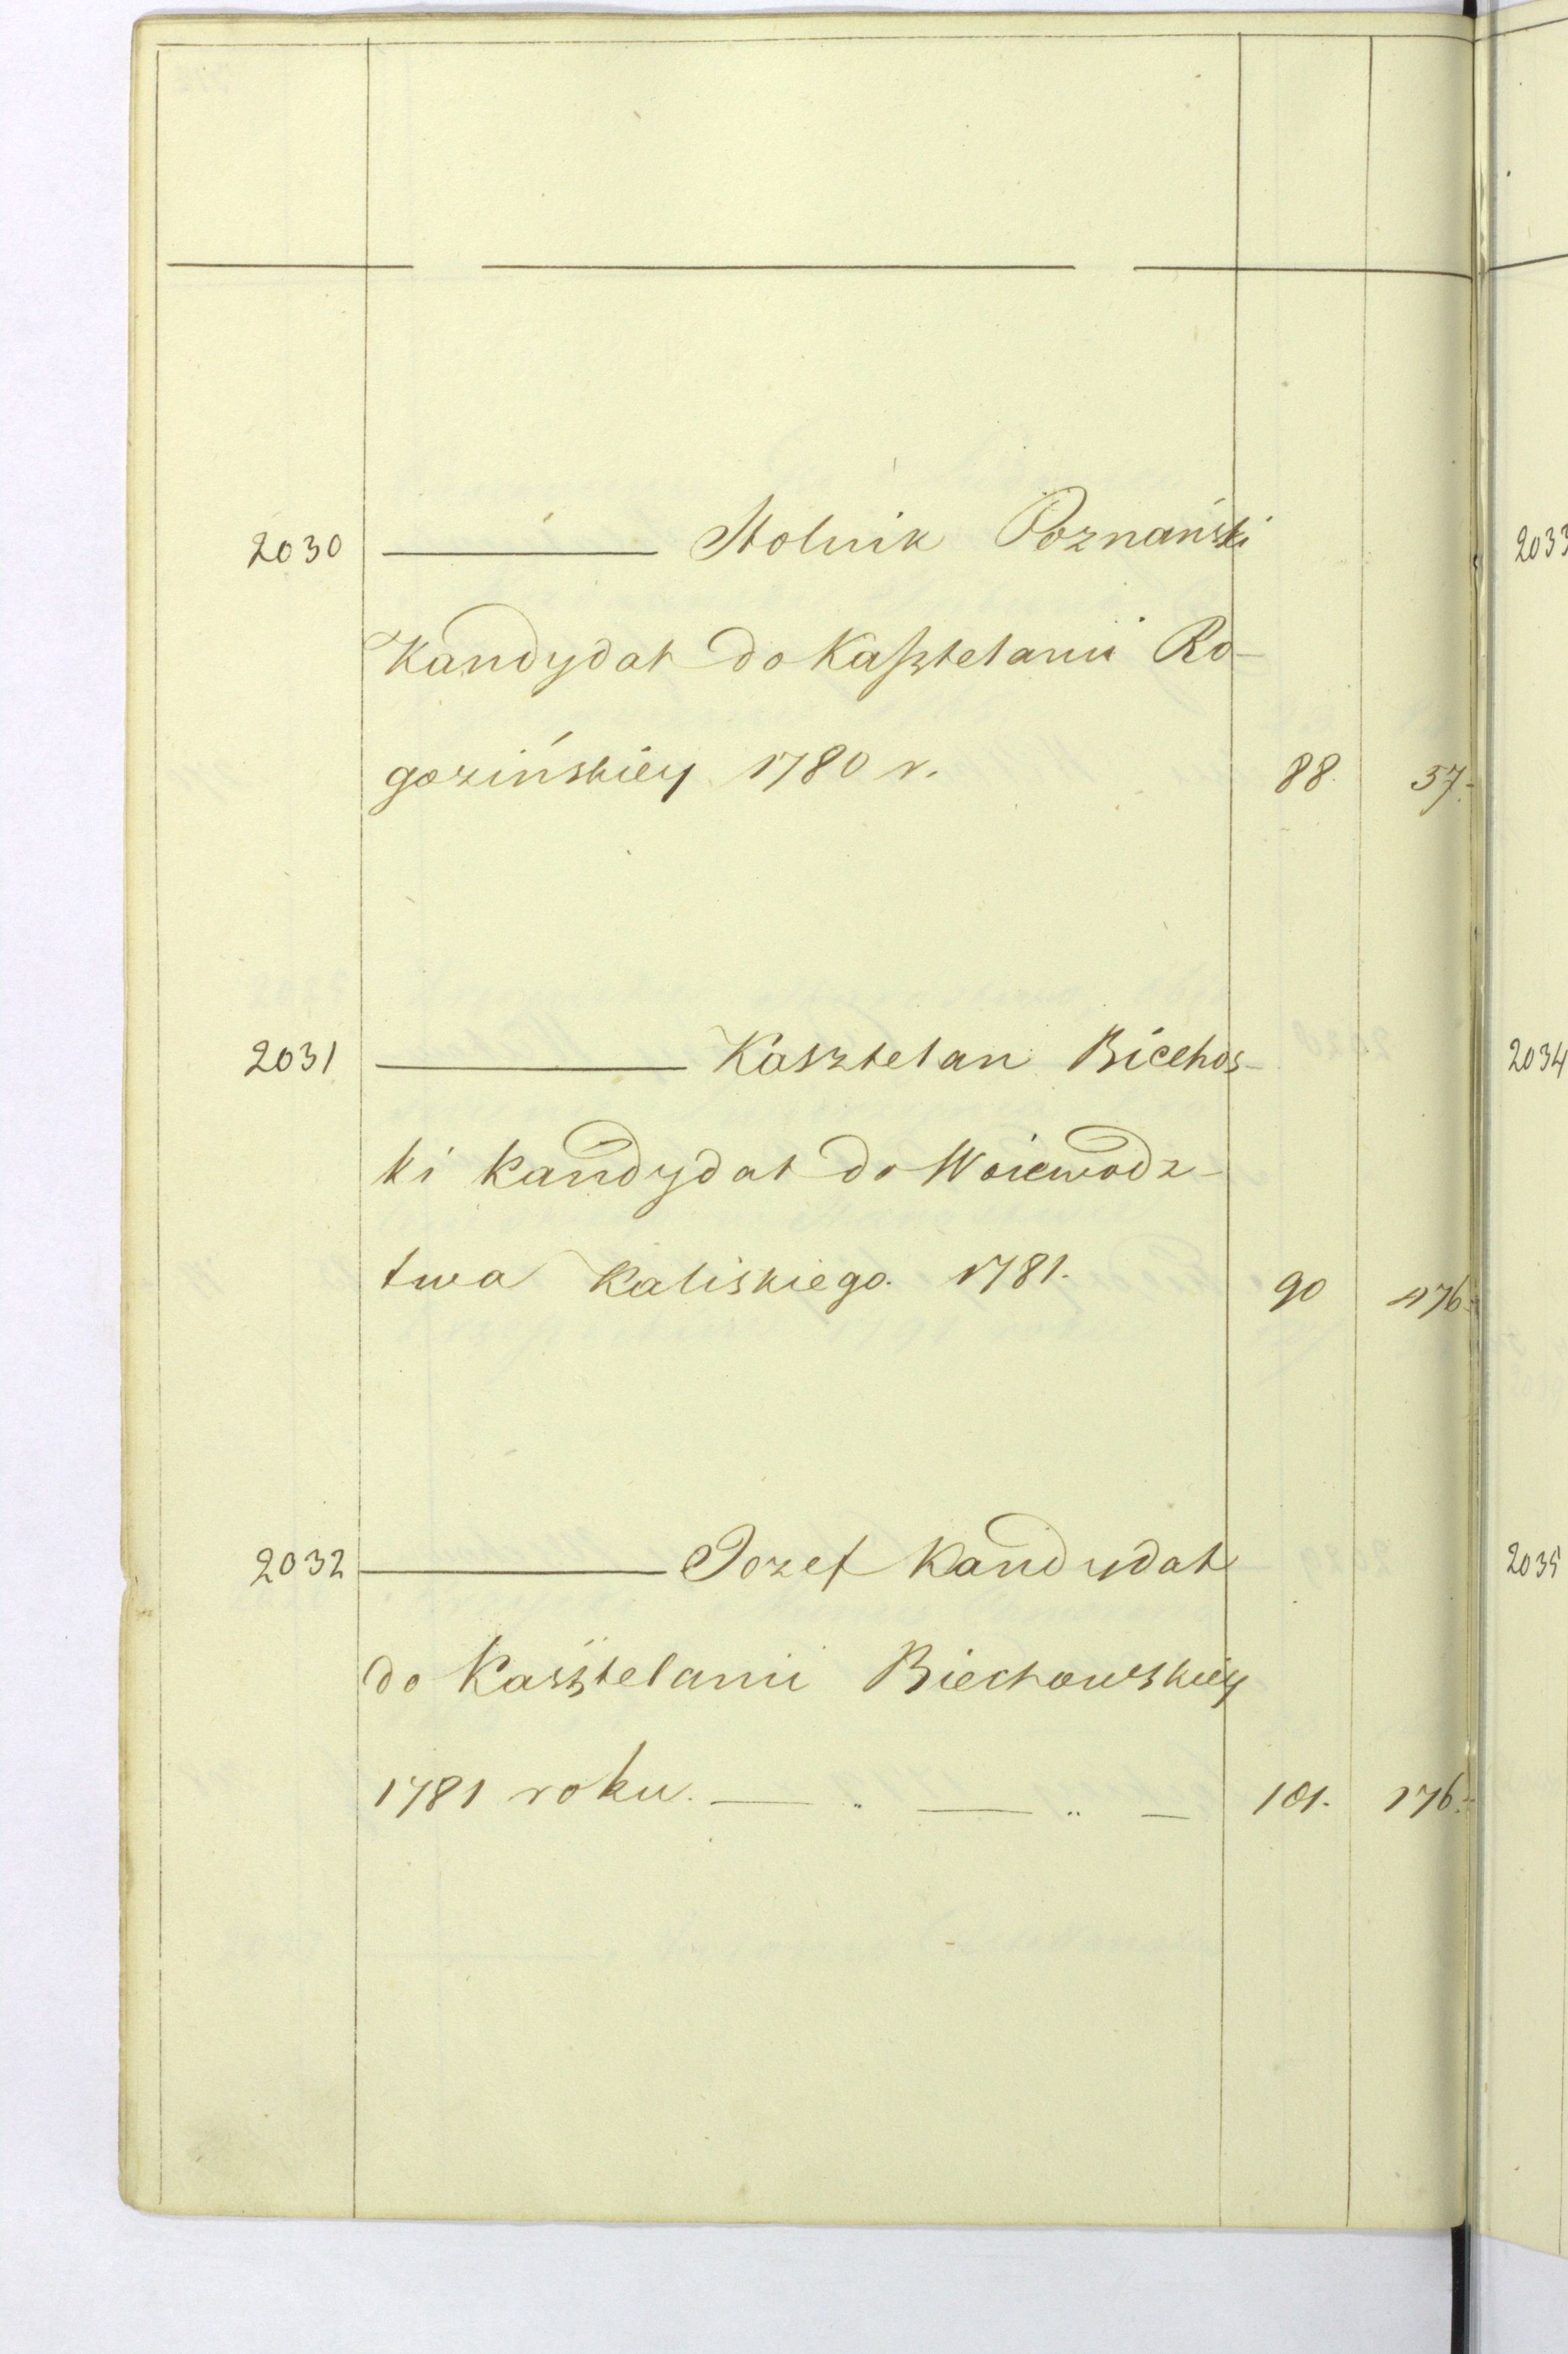 2030 ——— Stolnik Poznański
Kandydat do Kasztelanii Ro-
gozińskiey 1780 r. 88. 57.
2031 ——— Kasztelan Biechos-
ki kandydat do Woiewodz-
twa Kaliskiego. 1781. 90 176.
2032 ——— Jozef Kandydat
do Kasztelanii Biechowskiey
1781 roku. — „ — „ — 101. 176.
2033
2034
2035